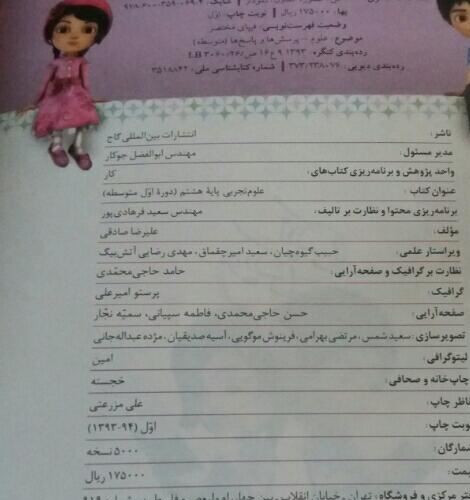 بها: ۱۷۵۰۰۰ ریال | نوبت چاپ: اوّل
وضعیت فهرست‌نویسی: فیپای مختصر
موضوع: علوم - پرسش‌ها و پاسخ‌ها (متوسطه)
رده‌بندی کنگره: ۱۳۹۳
رده‌بندی دیویی: ۳۷۳/۲۳۸۰۷۶ | شماره کتابشناسی ملی: ۳۵۱۸۰۴۲
ناشر: انتشارات بین‌المللی گاج
مدیر مسئول: مهندس ابوالفضل جوکار
واحد پژوهش و برنامه‌ریزی کتاب‌های: کار
عنوان کتاب: علوم تجربی پایهٔ هشتم (دورهٔ اوّل متوسطه)
برنامه‌ریزی محتوا و نظارت بر تالیف: مهندس سعید فرهادی‌پور
مؤلف: علیرضا صادقی
ویراستار علمی: حبیب گیوه‌چیان، سعید امیرچقماق، مهدی رضایی آتش‌بیگ
نظارت بر گرافیک و صفحه‌آرایی: حامد حاجی‌محمّدی
گرافیک: پرستو امیرعلی
صفحه‌آرایی: حسن حاجی‌محمدی، فاطمه سپیانی، سمیّه نجّار
تصویرسازی: سعید شمس، مرتضی بهرامی، فرینوش موگویی، آسیه صدیقیان، مژده عبداله‌جانی
لیتوگرافی: امین
چاپ‌خانه و صحافی: خجسته
ناظر چاپ: علی مزرعتی
نوبت چاپ: اوّل (۹۴-۱۳۹۳)
شمارگان: ۵۰۰۰ نسخه
قیمت: ۱۷۵۰۰۰ ریال
مرکزی و فروشگاه: تهران، خیابان انقلاب، بین چهارراه